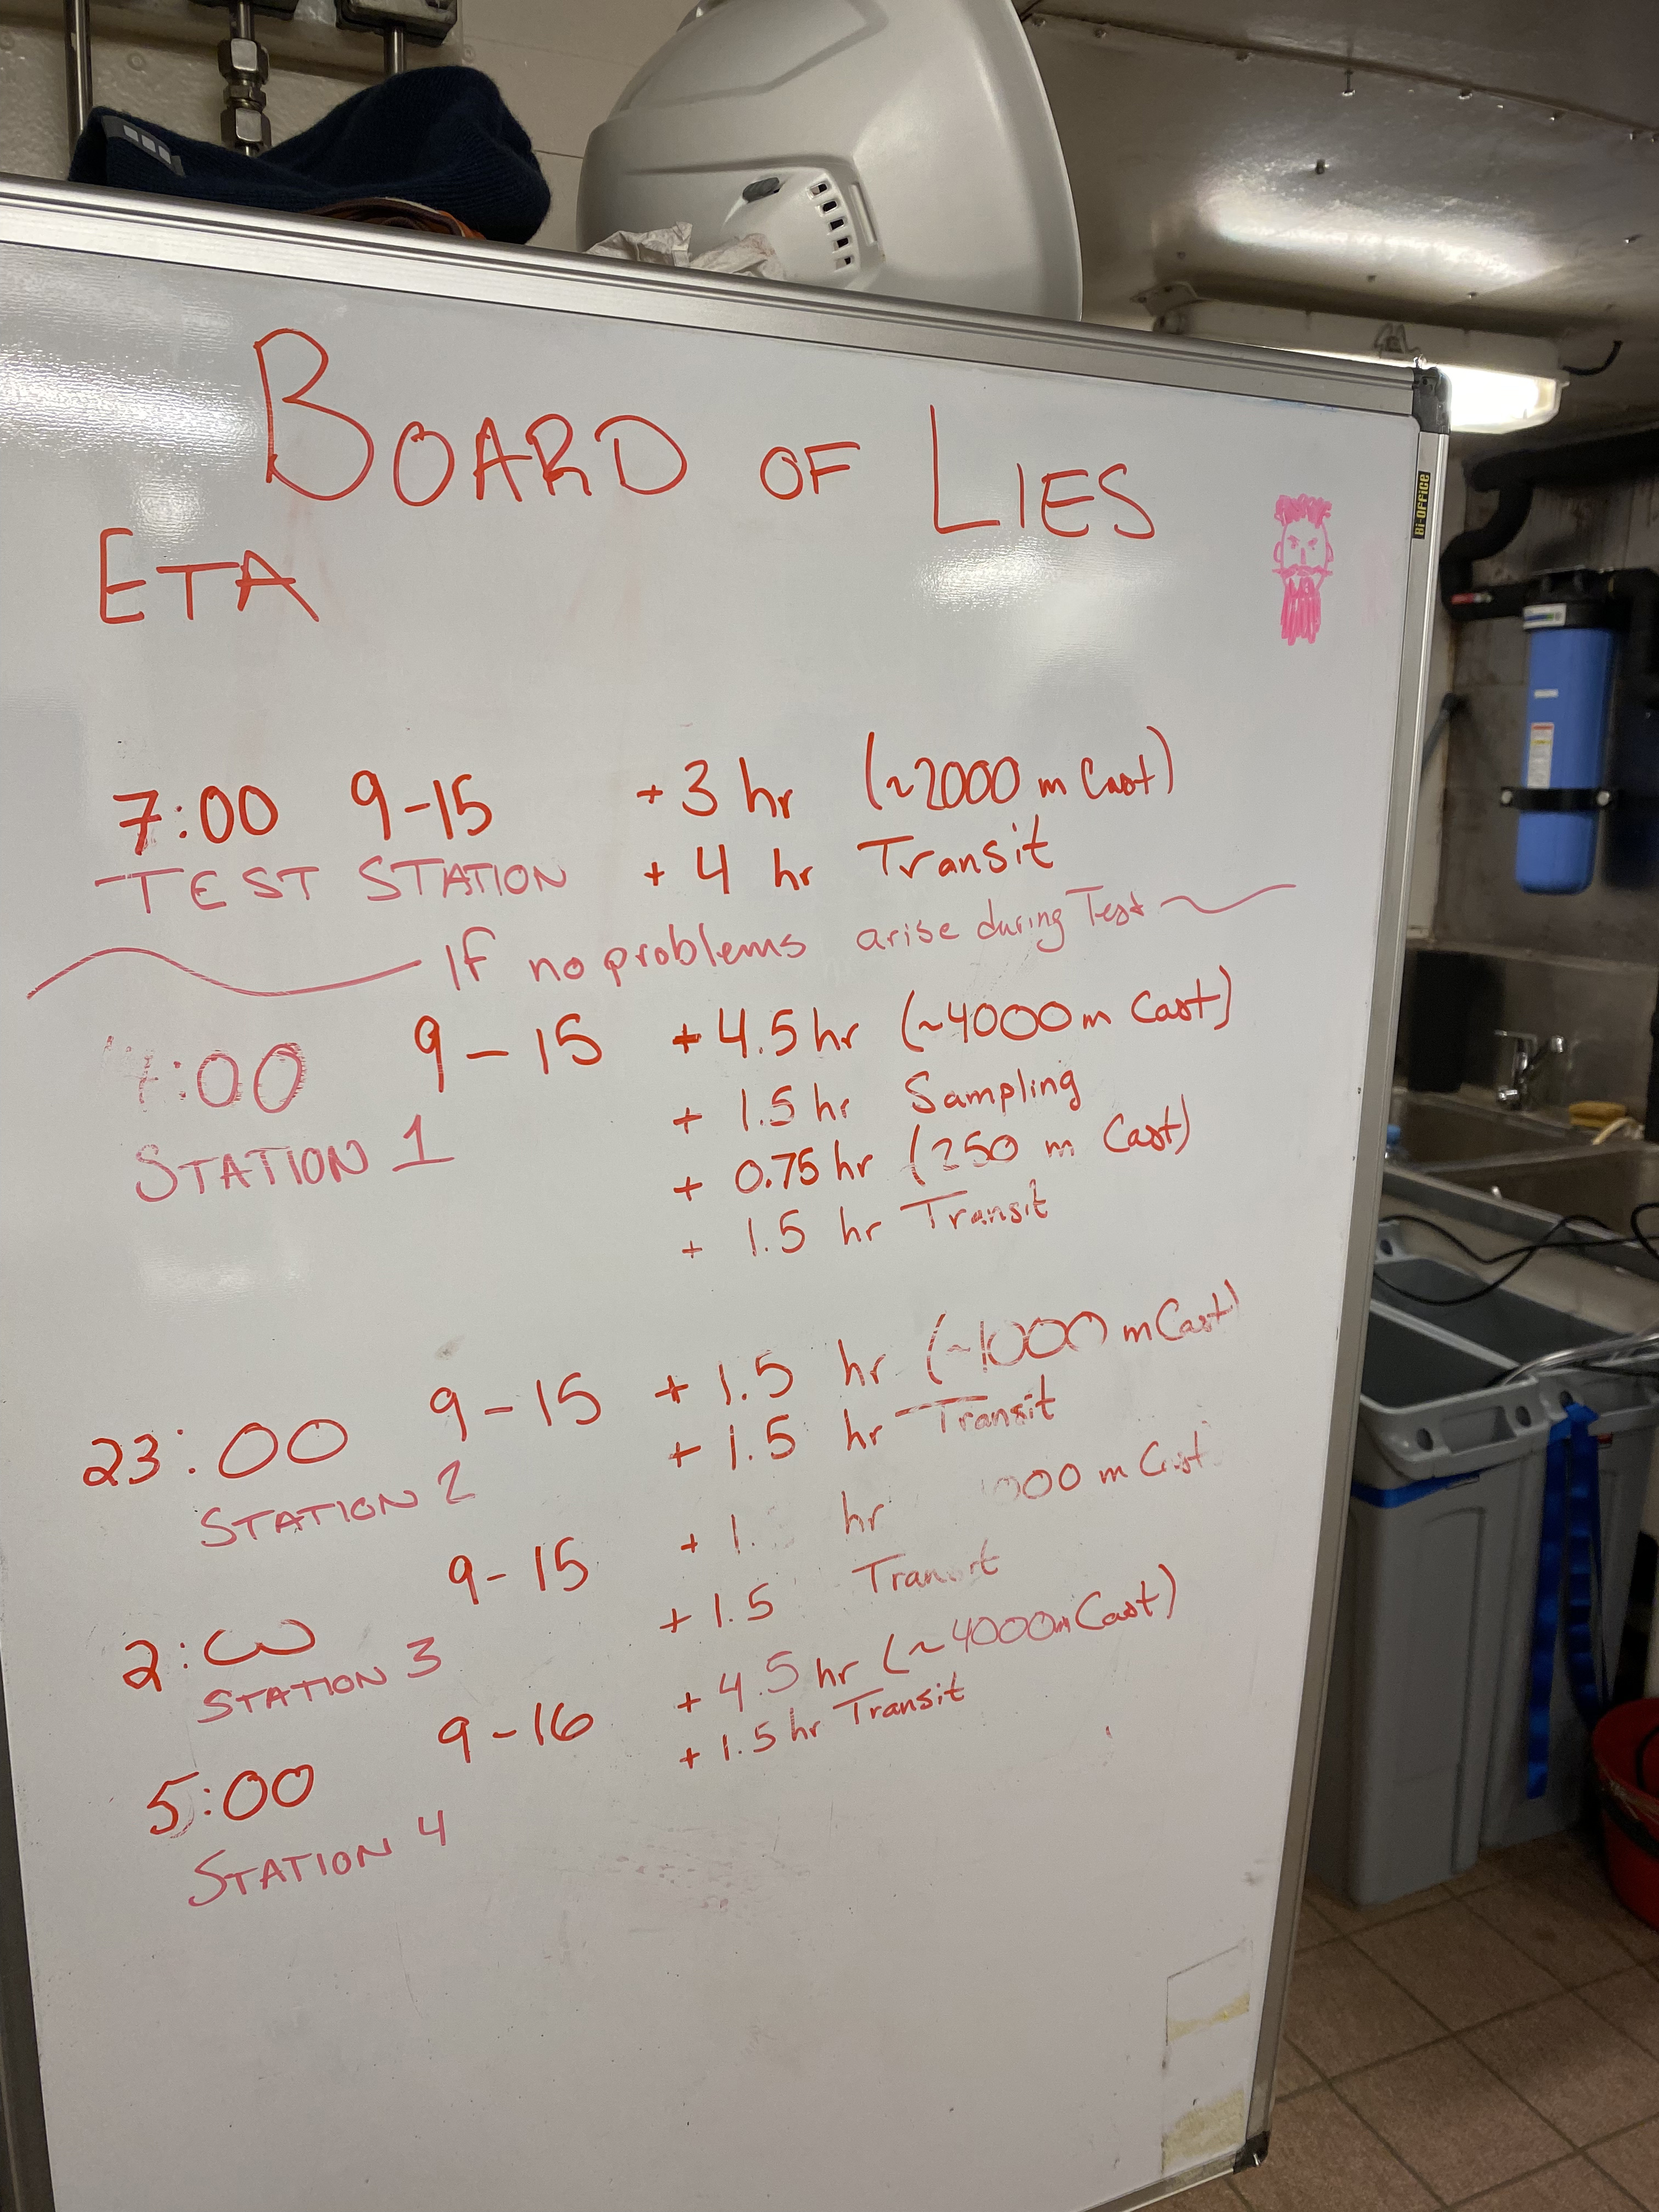 BOARD OF LIES
ETA
7:00 9-15 + 3 hr (~2000 m Cast)
TEST STATION + 4 hr Transit
If no problems arise during Test
:00 9-15 + 4.5 hr (~4000 m Cast)
+ 1.5 hr Sampling
STATION 1 + 0.75 hr (250 m Cast)
+ 1.5 hr Transit
23:00 9-15 + 1.5 hr (~1000 m Cast)
STATION 2 + 1.5 hr Transit
2:00 9-15 + 1. hr 000 m Cast
STATION 3 + 1.5 Transit
5:00 9-16 + 4.5 hr (~4000m Cast)
+ 1.5 hr Transit
STATION 4
Bi-Office